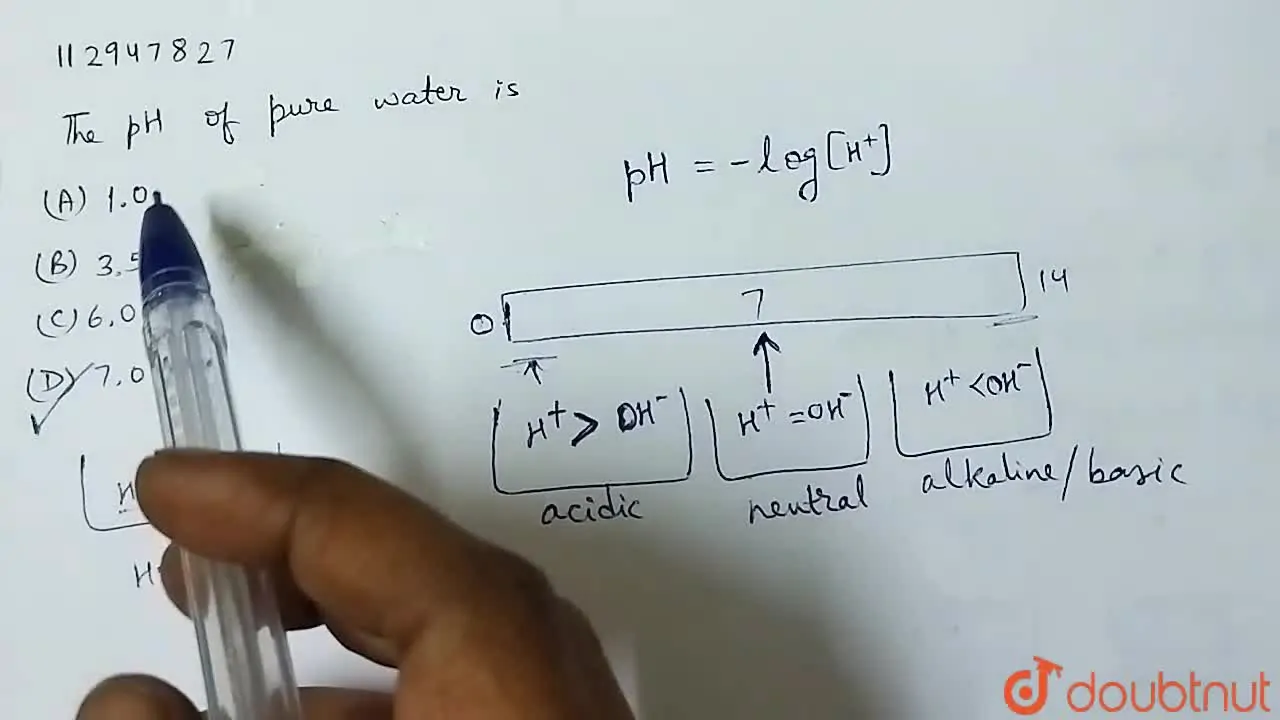 112947827
The pH of pure water is
(A) 1.0
(B) 3.5
(C) 6.0
(D) 7.0
pH = -log[H⁺]
0 7 14
H⁺ > OH⁻
acidic
H⁺ = OH⁻
neutral
H⁺ < OH⁻
alkaline/basic
doubtnut